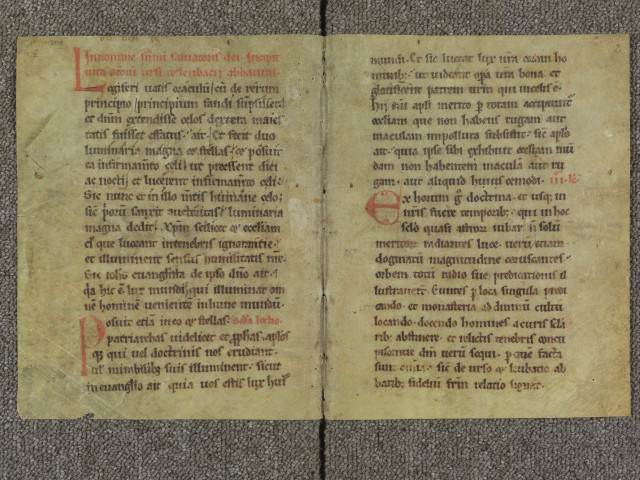 In nomine summi salvatoris dei. Incipit
vita sctorum ursi et leubacii abbatum.
Legiferi vatis oraculum cum de rerum
principio principium fandi sumpsisset
et dnm extendisse celos dextera maies
tatis fuisset effatus. ait. Et fecit duo
luminaria magna et stellas. et posuit
ea in firmamto celi. ut preessent diei
ac nocti. et lucerent in firmamto celi.
Sic nunc et in illo mentis humane celo.
sic auctoritas luminaria
magna dedit. Xpm scilicet et eccliam
ei que luceant in tenebris ignorantie.
et illuminent sensus humilitatis nre.
Sic iohs evanglista de ipso dno ait.
qa hic e lux mundi. qui illuminat om
ne hominem veniente in hunc mundu.
Posuit etia in eo et stellas.
patriarchas videlicet et pphas. aplos
qz qui vel doctrinis nos erudiant.
vel mirabilibz suis illuminent. sicut
in evanglio ait quia vos estis lux hui
mundi. Et sic luceat lux vra coram ho
minibz. ut videant opa vra bona. et
glorificent patrem vrm qui in celis e.
Hii enim apli merito p totam accipiunt
eccliam que non habens rugam aut
maculam impolluta subsistit. sic apls
ait. quia ipse sibi exhibuit eccliam mun
dam non habentem macula aut ru
gam. aut aliquid huius cemodi.
Ex horum g doctrina. et usqz in
nris fuere temporibz. qui in hoc
sclo quasi astrorum iubar. et soli
meritorum radiantes luce. verum etiam
dogmatum magnitudine coruscantes.
orbem totum radio sue predicationis il
lustrarent. Euntes p loca singula predi
cando. et monasteria ad divinum cultum
locando. docendo homines a curis scla
ribz abstinere. et relictis tenebris concu
piscentie dm verum sequi. p que facta
sunt omia. sic de urso et leubatio ab
batibz. fidelium frm relatio signat.